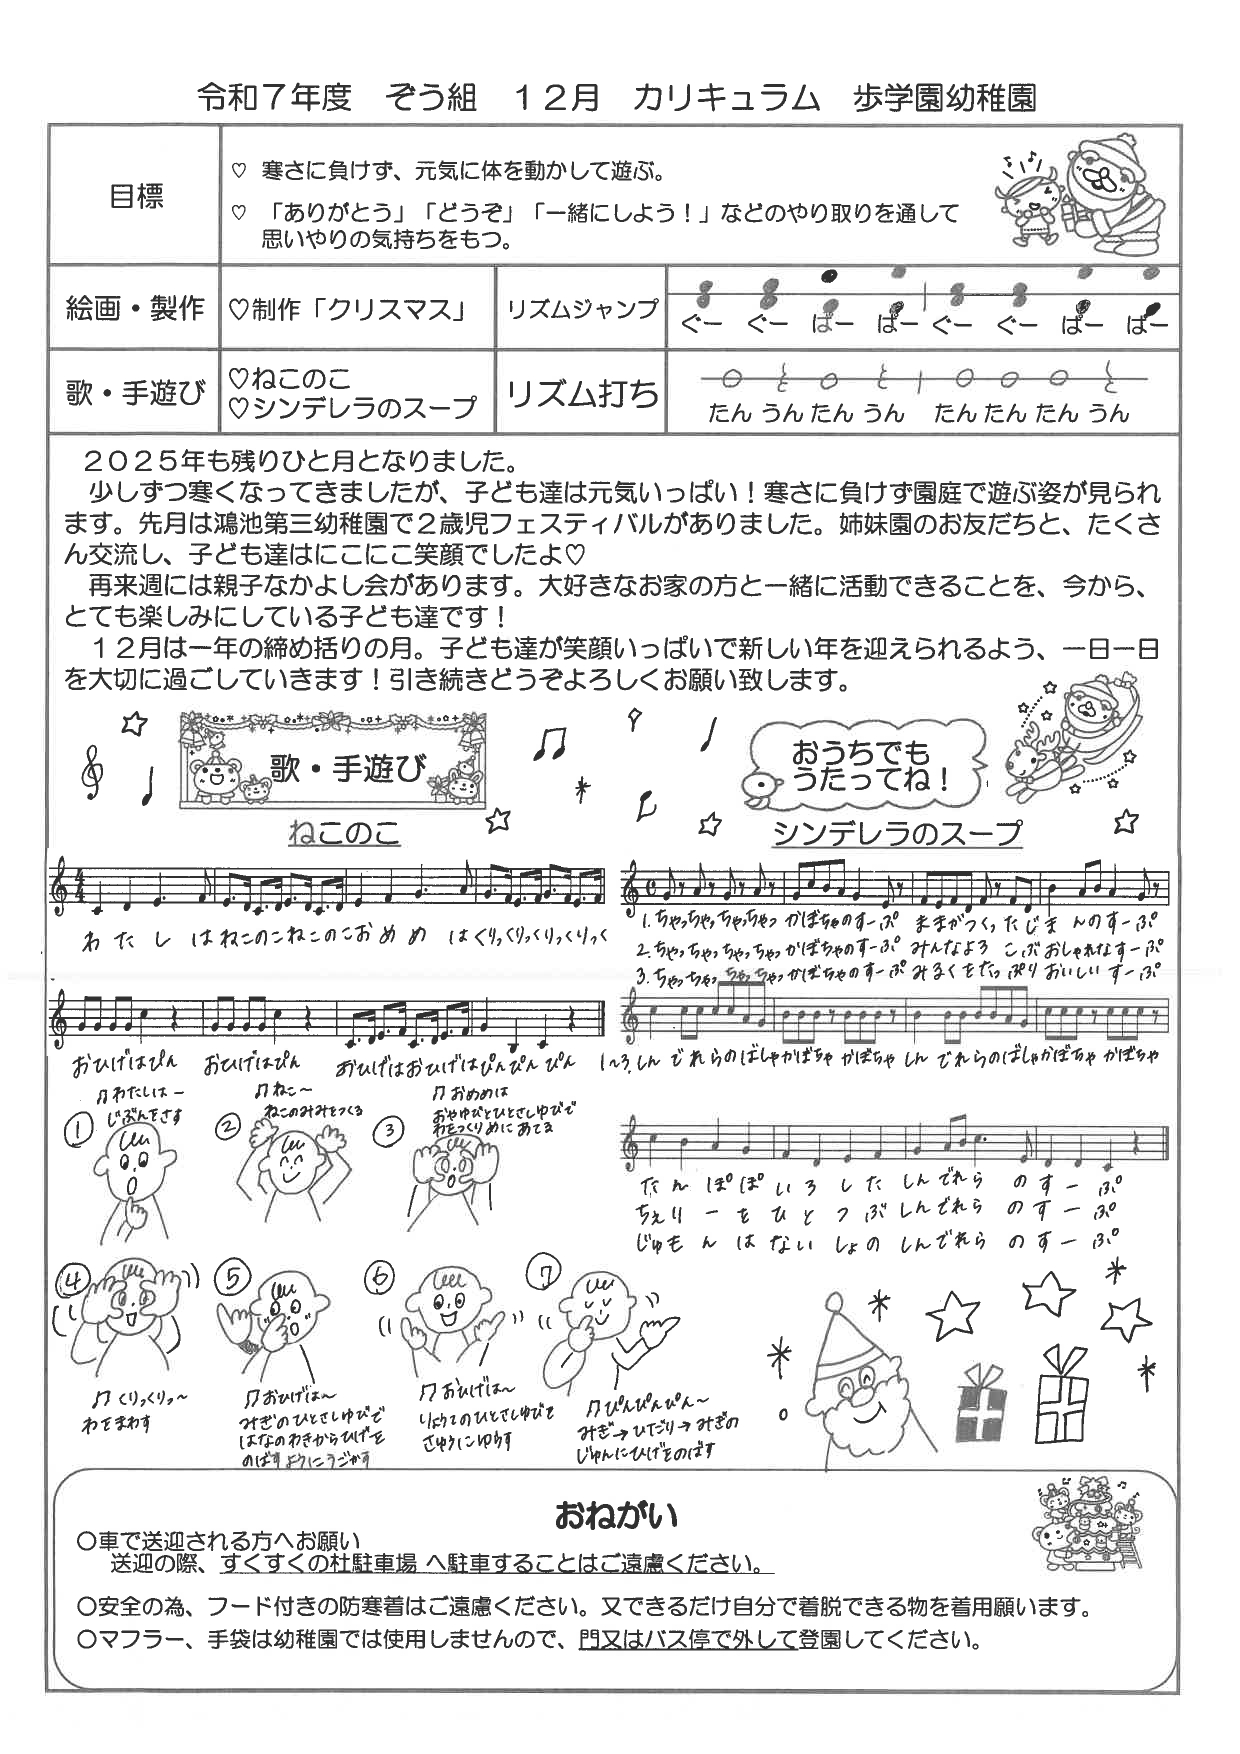 令和７年度　ぞう組　１２月　カリキュラム　歩学園幼稚園
目標
♡ 寒さに負けず、元気に体を動かして遊ぶ。
♡ 「ありがとう」「どうぞ」「一緒にしよう！」などのやり取りを通して
思いやりの気持ちをもつ。
絵画・製作
♡制作「クリスマス」
リズムジャンプ
ぐー ぐー ぱー ぱー ぐー ぐー ぱー ぱー
歌・手遊び
♡ねこのこ
♡シンデレラのスープ
リズム打ち
たん うん たん うん たん たん たん うん
２０２５年も残りひと月となりました。
少しずつ寒くなってきましたが、子ども達は元気いっぱい！寒さに負けず園庭で遊ぶ姿が見られ
ます。先月は鴻池第三幼稚園で２歳児フェスティバルがありました。姉妹園のお友だちと、たくさ
ん交流し、子ども達はにこにこ笑顔でしたよ♡
再来週には親子なかよし会があります。大好きなお家の方と一緒に活動できることを、今から、
とても楽しみにしている子ども達です！
１２月は一年の締め括りの月。子ども達が笑顔いっぱいで新しい年を迎えられるよう、一日一日
を大切に過ごしていきます！引き続きどうぞよろしくお願い致します。
歌・手遊び
ねこのこ
わたしはねこのこねこのこおめめはくりっくりっくりっくりっく
おひげはぴん おひげはぴん おひげはおひげはぴんぴんぴん
♫わたしは～
じぶんをさす
①
♫ねこ～
ねこのみみをつくる
②
♫おめめは
おやゆびとひとさしゆびで
わをつくりめにあてる
③
④
♫くりっくりっ～
わをまわす
⑤
♫おひげは～
みぎのひとさしゆびで
はなのわきからひげを
のばすようにうごかす
⑥
♫おひげは～
りょうてのひとさしゆびを
さゆうにゆらす
⑦
♫ぴんぴんぴん～
みぎ→ひだり→みぎの
じゅんにひげをのばす
おうちでも
うたってね！
シンデレラのスープ
1.ちゃっちゃっちゃっちゃっかぼちゃのすーぷ ままがつくったじまんのすーぷ
2.ちゃっちゃっちゃっちゃっかぼちゃのすーぷ みんなよろこぶおしゃれなすーぷ
3.ちゃっちゃっちゃっちゃっかぼちゃのすーぷ みるくをたっぷりおいしいすーぷ
1～3.しんでれらのばしゃかぼちゃ かぼちゃ しんでれらのばしゃかぼちゃ かぼちゃ
たんぽぽいろした しんでれらのすーぷ
ちぇりーをひとつぶ しんでれらのすーぷ
じゅもんはないしょの しんでれらのすーぷ
おねがい
○車で送迎される方へお願い
送迎の際、すくすくの杜駐車場 へ駐車することはご遠慮ください。
○安全の為、フード付きの防寒着はご遠慮ください。又できるだけ自分で着脱できる物を着用願います。
○マフラー、手袋は幼稚園では使用しませんので、門又はバス停で外して登園してください。